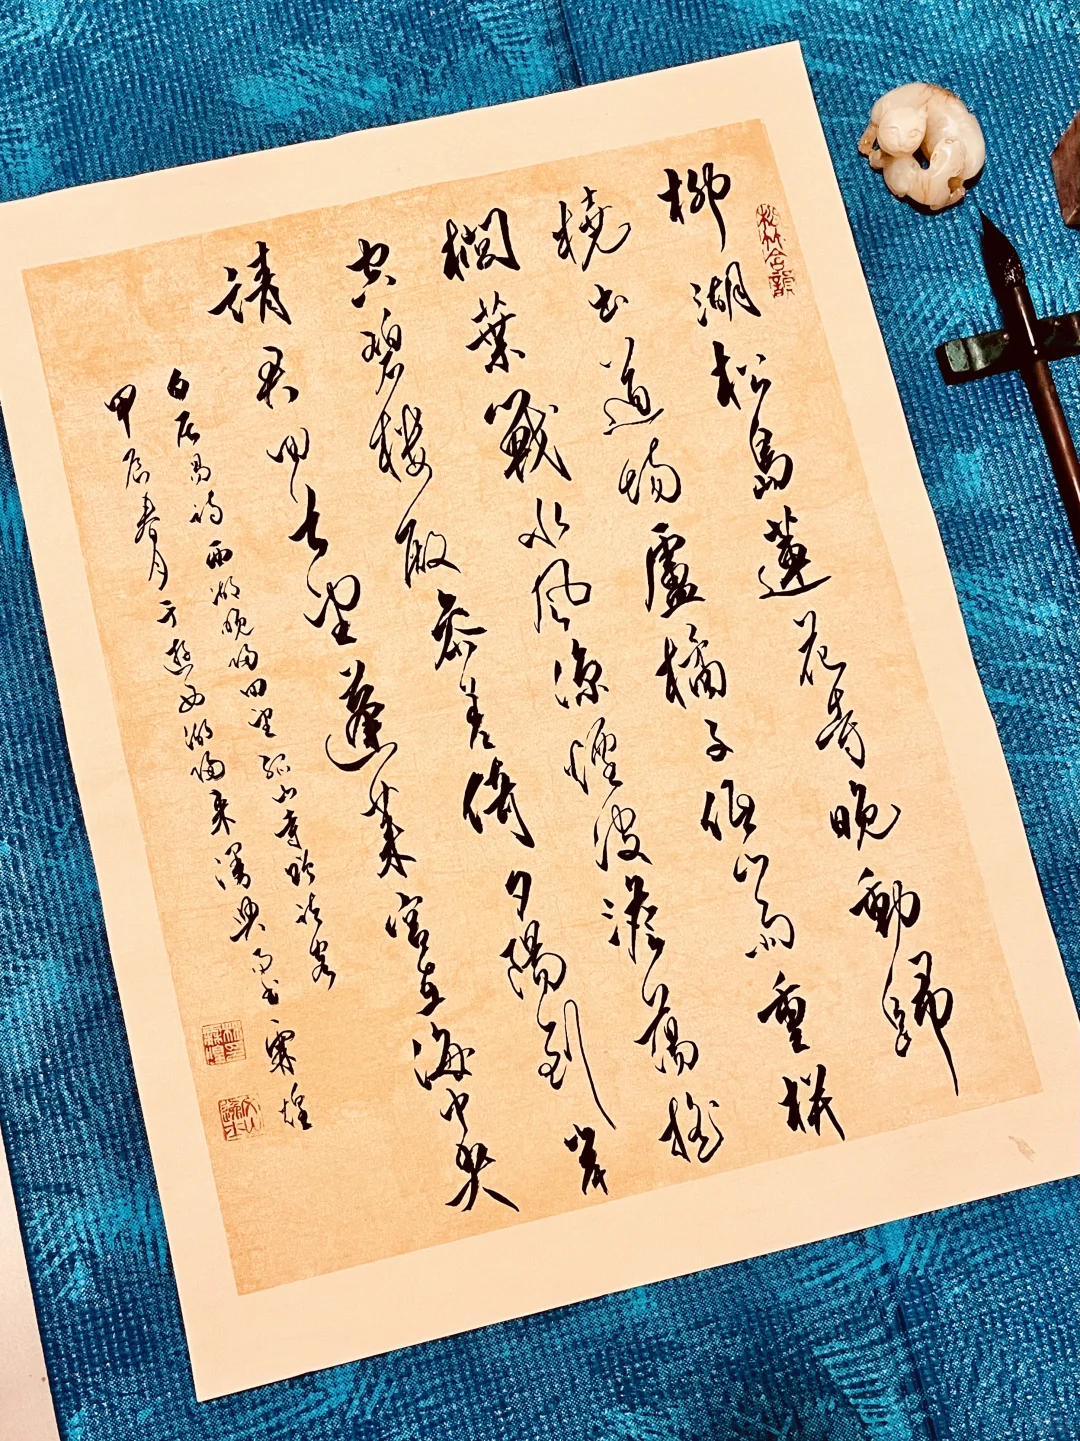 松竹合韻
柳湖松島蓮花寺晚動歸
橈出道場盧橘子低山雨重栟
櫚葉戰水風涼煙波澹蕩搖
空碧樓殿參差倚夕陽到岸
請君回首望蓬萊宮在海中央
白居易詩西湖晚歸回望孤山寺贈諸客
甲辰春月于遊西湖歸來漫興而書霖煌